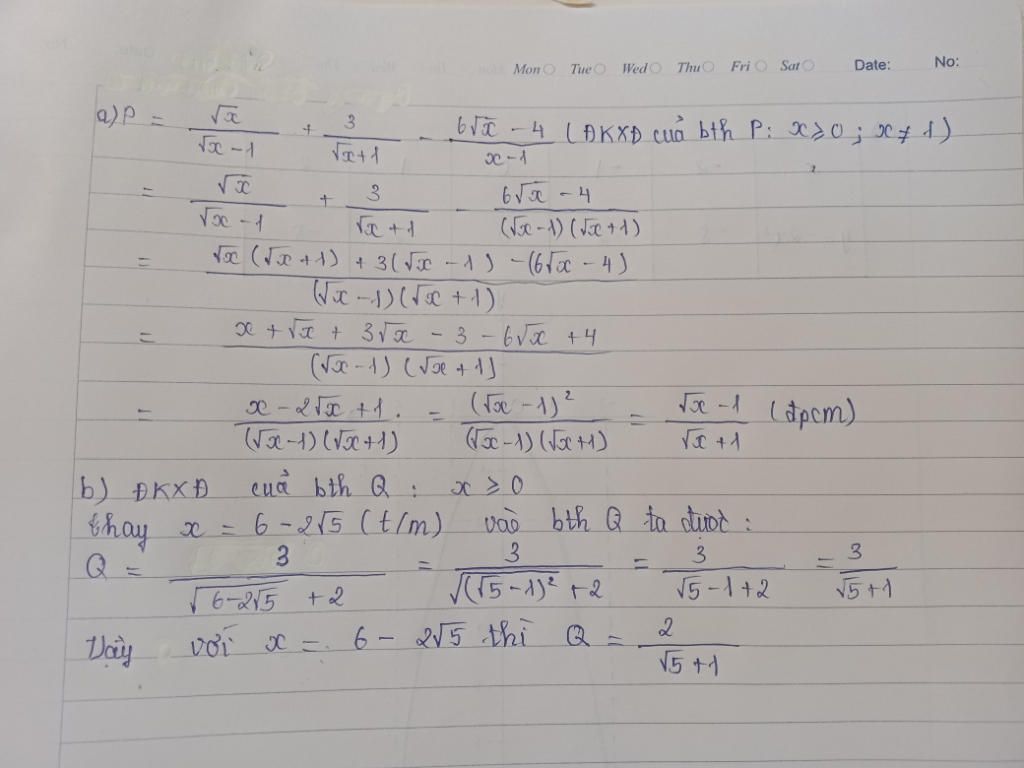 Mon Tue Wed Thu Fri Sat Date: No:
a) P = √x/(√x - 1) + 3/(√x + 1) - (6√x - 4)/(x - 1) (ĐKXĐ của bth P: x ≥ 0 ; x ≠ 1)
= √x/(√x - 1) + 3/(√x + 1) - (6√x - 4)/((√x - 1)(√x + 1))
= (√x(√x + 1) + 3(√x - 1) - (6√x - 4))/((√x - 1)(√x + 1))
= (x + √x + 3√x - 3 - 6√x + 4)/((√x - 1)(√x + 1))
= (x - 2√x + 1)/((√x - 1)(√x + 1)) = (√x - 1)²/((√x - 1)(√x + 1)) = (√x - 1)/(√x + 1) (đpcm)
b) ĐKXĐ của bth Q : x ≥ 0
thay x = 6 - 2√5 (t/m) vào bth Q ta được :
Q = 3/(√(6 - 2√5) + 2) = 3/(√((√5 - 1)²) + 2) = 3/(√5 - 1 + 2) = 3/(√5 + 1)
Vậy với x = 6 - 2√5 thì Q = 2/(√5 + 1)